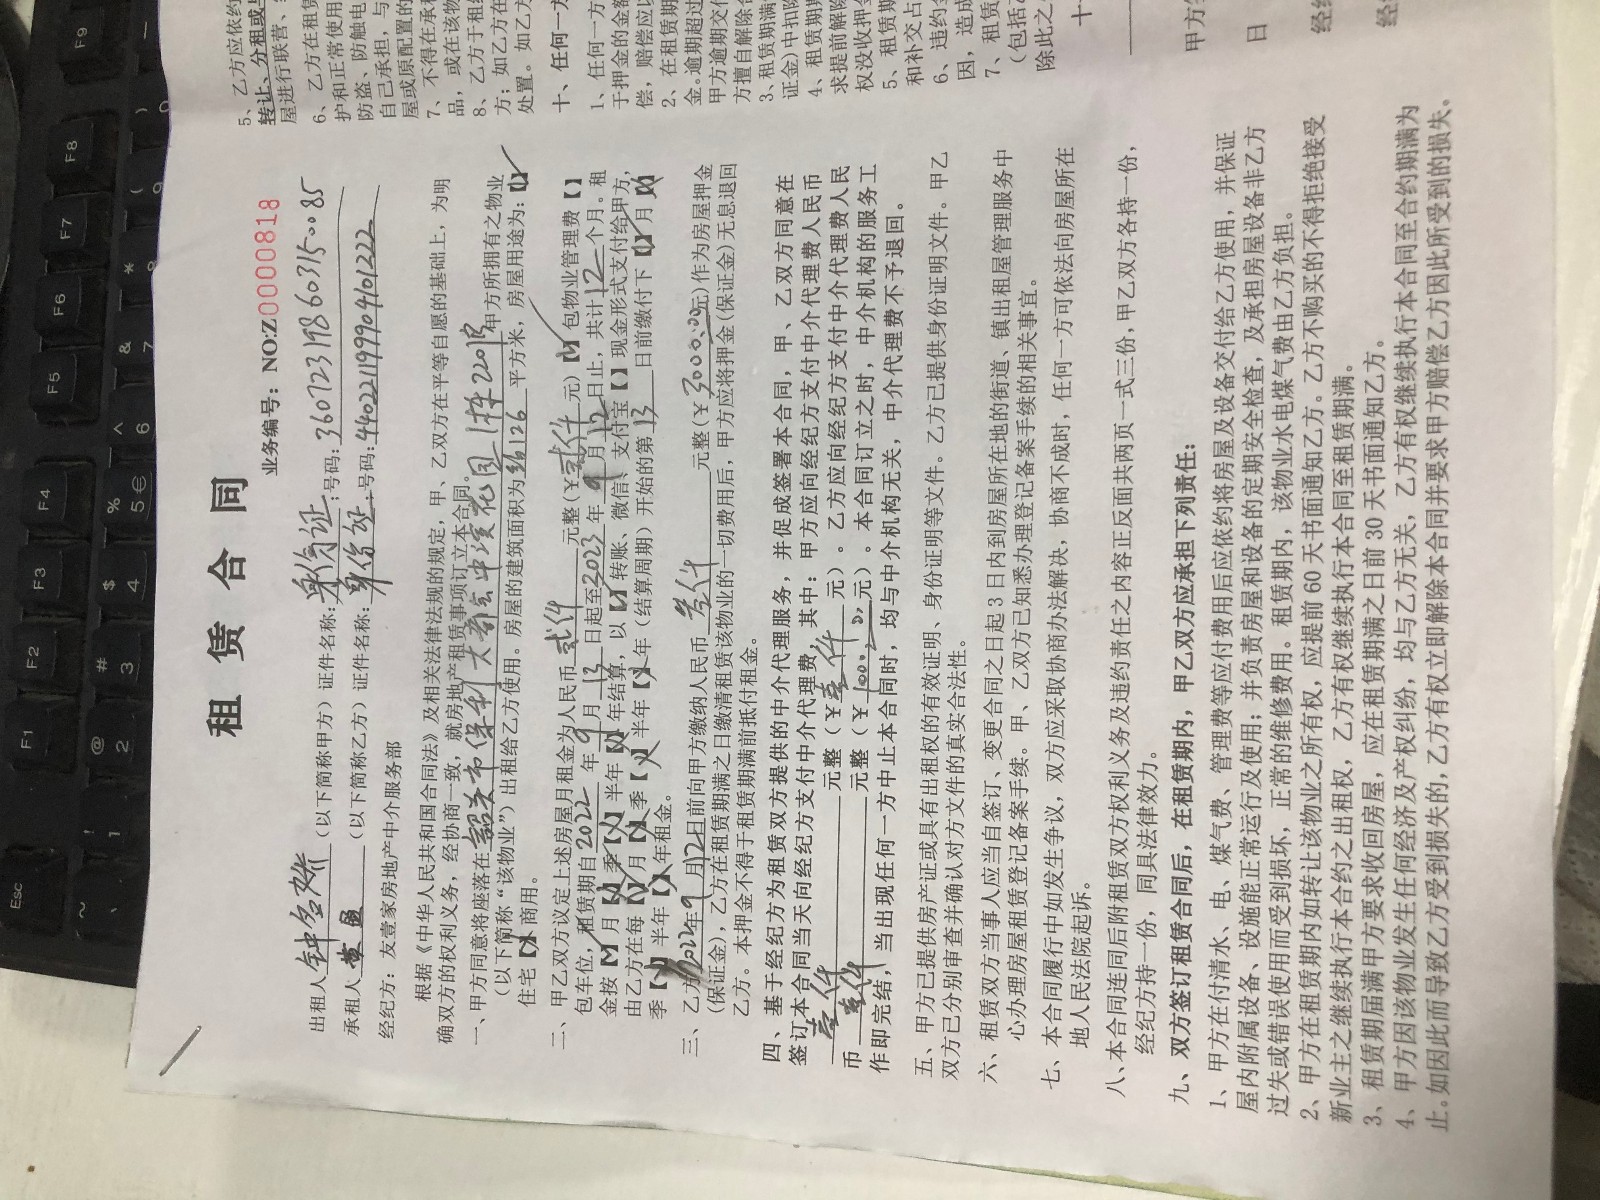 租赁合同
业务编号：NO:Z00000818
出租人（以下简称甲方）证件名称：身份证 号码：360723198603150085
承租人（以下简称乙方）证件名称：身份证 号码：440221199904101222
经纪方：友壹家房地产中介服务部
根据《中华人民共和国合同法》及相关法律法规的规定，甲、乙双方在平等自愿的基础上，为明
确双方的权利义务，经协商一致，就房地产租赁事项订立本合同。
一、甲方同意将座落在韶关市保利大都会中央花园1栋2201房甲方所拥有之物业
（以下简称“该物业”）出租给乙方使用。房屋的建筑面积为约126平方米，房屋用途为：【】
住宅【】商用。
二、甲乙双方议定上述房屋月租金为人民币贰仟元整（￥贰仟元）【】包物业管理费【】
包车位，租赁期自2022年9月13日起至2023年9月12日止，共计12个月。租
金按【】月【】季【】半年【】年结算，以【】转账、微信、支付宝【】现金形式支付给甲方，
由乙方在每【】月【】季【】半年【】年（结算周期）开始的第13日前缴付下【】月【】
季【】半年【】年租金。
三、乙方2022年9月12日前向甲方缴纳人民币叁仟元整（￥3000.00元）作为房屋押金
（保证金），乙方在租赁期满之日缴清租赁该物业的一切费用后，甲方应将押金（保证金）无息退回
乙方。本押金不得于租赁期满前抵付租金。
四、基于经纪方为租赁双方提供的中介代理服务，并促成签署本合同，甲、乙双方同意在
签订本合同当天向经纪方支付中介代理费，其中：甲方应向经纪方支付中介代理费人民币
壹仟元整（￥壹仟元）。乙方应向经纪方支付中介代理费人民
币壹仟元整（￥1000.00元）。本合同订立之时，中介机构的服务工
作即完结，当出现任何一方中止本合同时，均与中介机构无关，中介代理费不予退回。
五、甲方已提供房产证或具有出租权的有效证明、身份证明等文件。乙方已提供身份证明文件。甲乙
双方已分别审查并确认对方文件的真实合法性。
六、租赁双方当事人应当自签订、变更合同之日起3日内到房屋所在地的街道、镇出租屋管理服务中
心办理房屋租赁登记备案手续。甲、乙双方已知悉办理登记备案手续的相关事宜。
七、本合同履行中如发生争议，双方应采取协商办法解决，协商不成时，任何一方可依法向房屋所在
地人民法院起诉。
八、本合同连同后附租赁双方权利义务及违约责任之内容正反面共两页一式三份，甲乙双方各持一份，
经纪方持一份，同具法律效力。
九、双方签订租赁合同后，在租赁期内，甲乙双方应承担下列责任：
1、甲方在付清水、电、煤气费、管理费等应付费用后应依约将房屋及设备交付给乙方使用，并保证
屋内附属设备、设施能正常运行及使用；并负责房屋和设备的定期安全检查，及承担房屋设备非乙方
过失或错误使用而受到损坏，正常的维修费用。租赁期内，该物业水电煤气费由乙方负担。
2、甲方在租赁期内如转让该物业之所有权，应提前60天书面通知乙方。乙方不购买的不得拒绝接受
新业主之继续执行本合约之出租权，乙方有权继续执行本合同至租赁期满。
3、租赁期届满甲方要求收回房屋，应在租赁期满之日前30天书面通知乙方。
4、甲方因该物业发生任何经济及产权纠纷，均与乙方无关，乙方有权继续执行本合同至合约期满为
止。如因此而导致乙方受到损失的，乙方有权立即解除本合同并要求甲方赔偿乙方因此所受到的损失。
5、乙方应依约
转让、分租或与
屋进行联营、
6、乙方在租赁
护和正常使用
防盗、防触电
自己承担，与
屋或原配置的
7、不得在承租
品，或在该物
8、乙方于租
方；如乙方在
处置。如乙方
十、任何一方
1、任何一方
于押金的金额
偿，赔偿应以
2、在租赁期
金。逾期超过
甲方逾期交付
方擅自解除合
3、租赁期满
证金）中扣除
4、租赁期
求提前解除
权没收押金
5、租赁期
和补交占
6、违约金
因，造成
7、租赁
（包括
除此之
十
甲方
日
经
经
Esc
F1
F2
F3
F4
F5
F6
F7
F8
F9
~ 、
! 1
@ 2
# 3
$ 4
% 5 €
^ 6
& 7
* 8
( 9
) 0